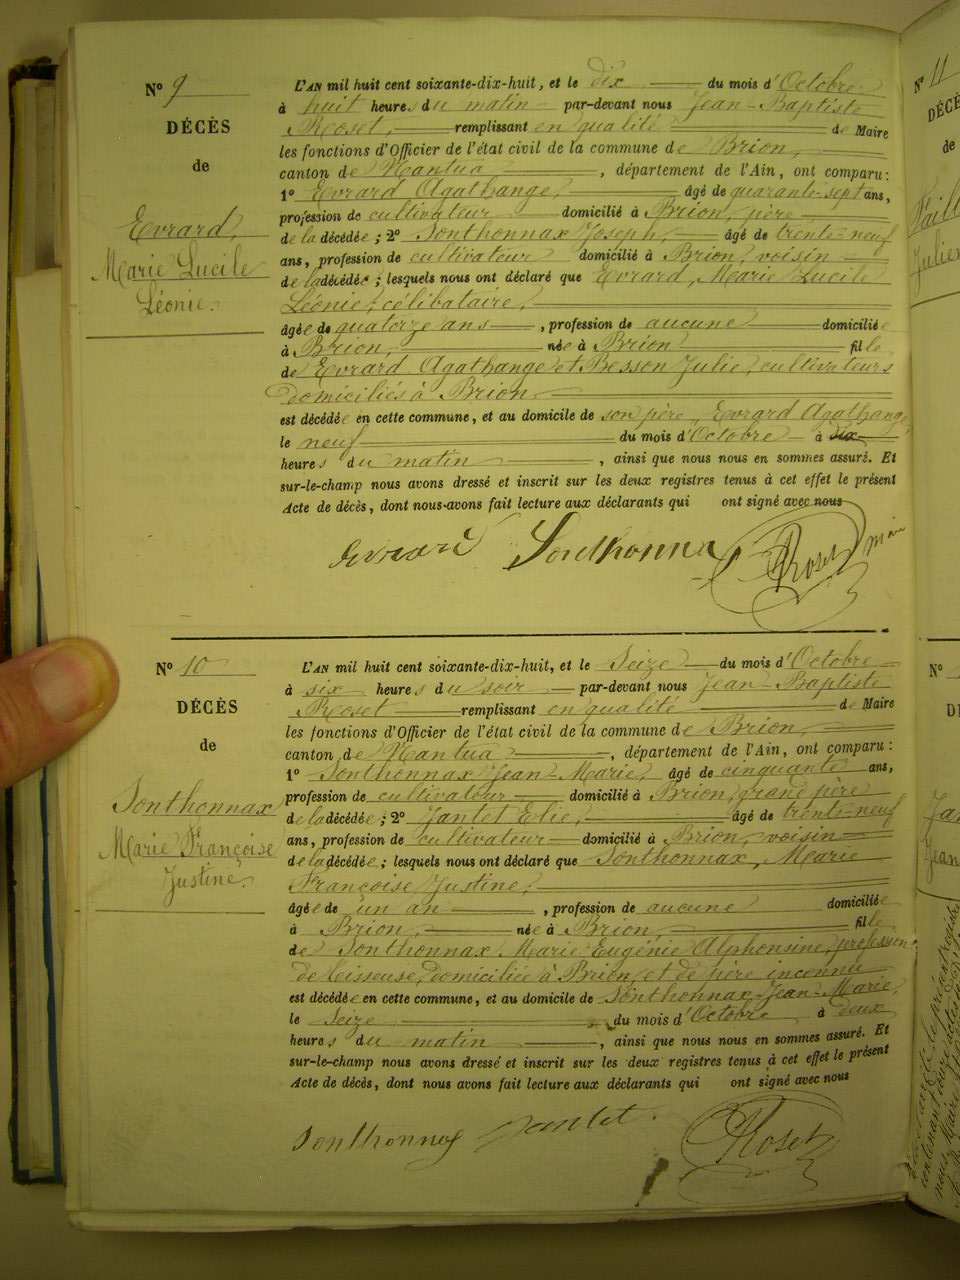 N° 9
DÉCÈS
de
Evrard,
Marie Lucile
Léonie.
L'AN mil huit cent soixante-dix-huit, et le dix du mois d'Octobre
à huit heures du matin par-devant nous Jean-Baptiste
Roset, remplissant en qualité de Maire
les fonctions d'Officier de l'état civil de la commune de Brion,
canton de Nantua, département de l'Ain, ont comparu :
1° Evrard Agathange, âgé de quarante-sept ans,
profession de cultivateur domicilié à Brion, père
de la décédée ; 2° Sonthonnax Joseph, âgé de trente-neuf
ans, profession de cultivateur domicilié à Brion, voisin
de la décédée ; lesquels nous ont déclaré que Evrard, Marie Lucile
Léonie, célibataire,
âgée de quatorze ans, profession de aucune domiciliée
à Brion, née à Brion fille
de Evrard Agathange et Besson Julie, cultivateurs
domiciliés à Brion
est décédée en cette commune, et au domicile de son père, Evrard Agathange
le neuf du mois d'Octobre à dix
heures du matin, ainsi que nous nous en sommes assuré. Et
sur-le-champ nous avons dressé et inscrit sur les deux registres tenus à cet effet le présent
Acte de décès, dont nous avons fait lecture aux déclarants qui ont signé avec nous
Evrard Sonthonnax Roset maire
N° 10
DÉCÈS
de
Sonthonnax
Marie Françoise
Justine.
L'AN mil huit cent soixante-dix-huit, et le Seize du mois d'Octobre
à six heures du soir par-devant nous Jean-Baptiste
Roset remplissant en qualité de Maire
les fonctions d'Officier de l'état civil de la commune de Brion,
canton de Nantua, département de l'Ain, ont comparu :
1° Sonthonnax Jean-Marie, âgé de cinquante ans,
profession de cultivateur domicilié à Brion, grand père
de la décédée ; 2° Jantet Elie, âgé de trente-neuf
ans, profession de cultivateur domicilié à Brion, voisin
de la décédée ; lesquels nous ont déclaré que Sonthonnax, Marie
Françoise Justine,
âgée de un an, profession de aucune domiciliée
à Brion, née à Brion, fille
de Sonthonnax Marie Eugénie Alphonsine, profession
de tisseuse, domiciliée à Brion, et de père inconnu
est décédée en cette commune, et au domicile de Sonthonnax Jean-Marie,
le Seize du mois d'Octobre à deux
heures du matin, ainsi que nous nous en sommes assuré. Et
sur-le-champ nous avons dressé et inscrit sur les deux registres tenus à cet effet le présent
Acte de décès, dont nous avons fait lecture aux déclarants qui ont signé avec nous
Sonthonnax Jantet Roset
N° 11
DÉCÈS
de
N°